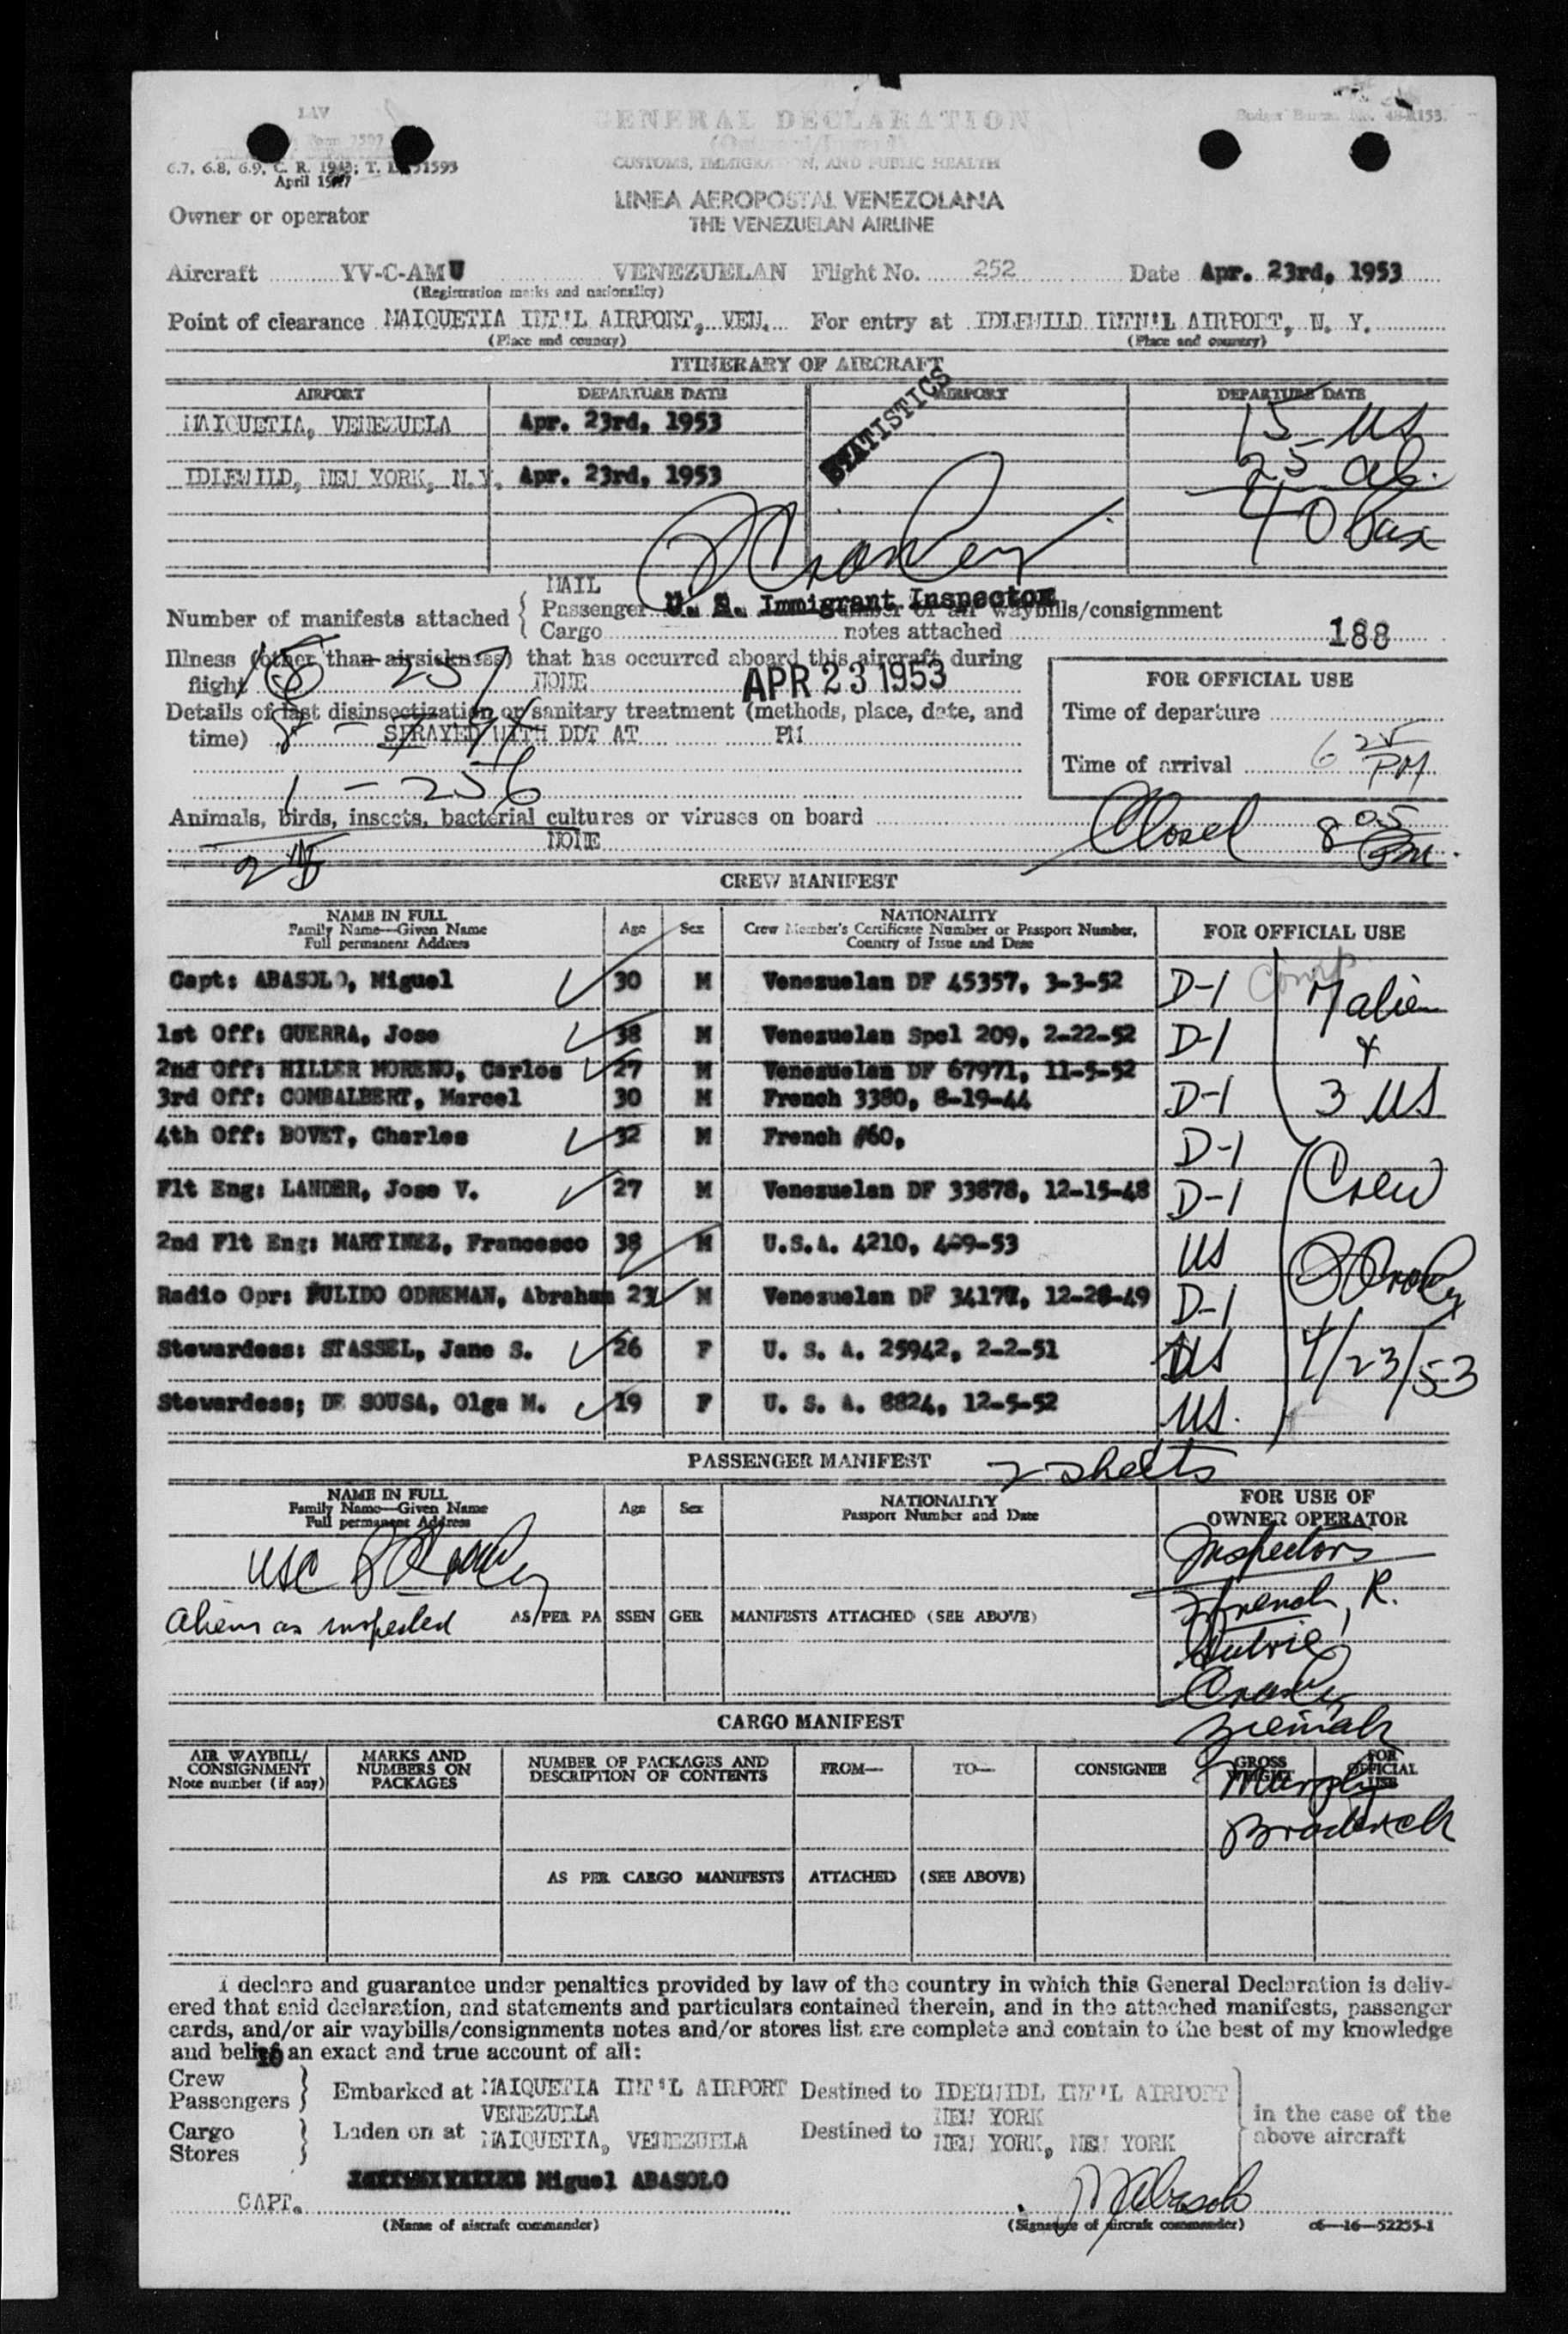 LAV
GENERAL DECLARATION
Budget Bureau No. 48-R153.
Form 7507
(Outward/Inward)
6.7, 6.8, 6.9, C. R. 1943; T. D. 51593
April 1947
CUSTOMS, IMMIGRATION, AND PUBLIC HEALTH
LINEA AEROPOSTAL VENEZOLANA
THE VENEZUELAN AIRLINE
Owner or operator
Aircraft YV-C-AMU VENEZUELAN Flight No. 252 Date Apr. 23rd, 1953
(Registration marks and nationality)
Point of clearance MAIQUETIA INT'L AIRPORT, VEN. For entry at IDLEWILD INTN'L AIRPORT, N. Y.
(Place and country) (Place and country)
ITINERARY OF AIRCRAFT
AIRPORT DEPARTURE DATE AIRPORT DEPARTURE DATE
STATISTICS
MAIQUETIA, VENEZUELA Apr. 23rd, 1953 15 - US
IDLEWILD, NEW YORK, N.Y. Apr. 23rd, 1953 25 al.
40 Pax
MAIL
Number of manifests attached { Passenger Number of air waybills/consignment
U. S. Immigrant Inspector
Cargo notes attached 188
Illness (other than airsickness) that has occurred aboard this aircraft during
flight NONE
APR 23 1953
257
Details of last disinsectization or sanitary treatment (methods, place, date, and
time) SPRAYED WITH DDT AT PM
1 - 256
FOR OFFICIAL USE
Time of departure
Time of arrival 6 25 PM
Animals, birds, insects, bacterial cultures or viruses on board
NONE
Closed 8 05 Pm.
CREW MANIFEST
NAME IN FULL
Family Name—Given Name
Full permanent Address
Age Sex
NATIONALITY
Crew Member's Certificate Number or Passport Number,
Country of Issue and Date
FOR OFFICIAL USE
Capt: ABASOLO, Miguel 30 M Venezuelan DF 45357, 3-3-52 D-1 Comp. 7 alien
1st Off: GUERRA, Jose 38 M Venezuelan Spel 209, 2-22-52 D-1 &
2nd Off: HILLER MORENO, Carlos 27 M Venezuelan DF 67971, 11-5-52
3rd Off: COMBALBERT, Marcel 30 M French 3380, 8-19-44 D-1 3 US
4th Off: BOVET, Charles 32 M French #60, D-1
Flt Eng: LANDER, Jose V. 27 M Venezuelan DF 33878, 12-15-48 D-1 Crew
2nd Flt Eng: MARTINEZ, Francesco 38 M U.S.A. 4210, 4-9-53 US
Radio Opr: PULIDO ODREMAN, Abraham 23 M Venezuelan DF 34177, 12-28-49 D-1
Stewardess: STASSEL, Jane S. 26 F U. S. A. 25942, 2-2-51 US 4/23/53
Stewardess; DE SOUSA, Olga M. 19 F U. S. A. 8824, 12-5-52 US.
PASSENGER MANIFEST 2 sheets
NAME IN FULL
Family Name—Given Name
Full permanent Address
Age Sex
NATIONALITY
Passport Number and Date
FOR USE OF
OWNER OPERATOR
USC
Inspectors
French, R.
Aliens as inspected AS PER PASSENGER MANIFESTS ATTACHED (SEE ABOVE)
CARGO MANIFEST
AIR WAYBILL/
CONSIGNMENT
Note number (if any)
MARKS AND
NUMBERS ON
PACKAGES
NUMBER OF PACKAGES AND
DESCRIPTION OF CONTENTS
FROM— TO— CONSIGNEE
GROSS
WEIGHT
FOR
OFFICIAL
USE
Murphy
Broderick
AS PER CARGO MANIFESTS ATTACHED (SEE ABOVE)
I declare and guarantee under penalties provided by law of the country in which this General Declaration is deliv-
ered that said declaration, and statements and particulars contained therein, and in the attached manifests, passenger
cards, and/or air waybills/consignments notes and/or stores list are complete and contain to the best of my knowledge
and belief an exact and true account of all:
Crew
Passengers } Embarked at MAIQUETIA INT'L AIRPORT Destined to IDELWIDL INT'L AIRPORT
VENEZUELA NEW YORK
Cargo
Stores } Laden on at MAIQUETIA, VENEZUELA Destined to NEW YORK, NEW YORK
in the case of the
above aircraft
Miguel ABASOLO
CAPT. MAbasolo
(Name of aircraft commander) (Signature of aircraft commander) c6—16—52255-1